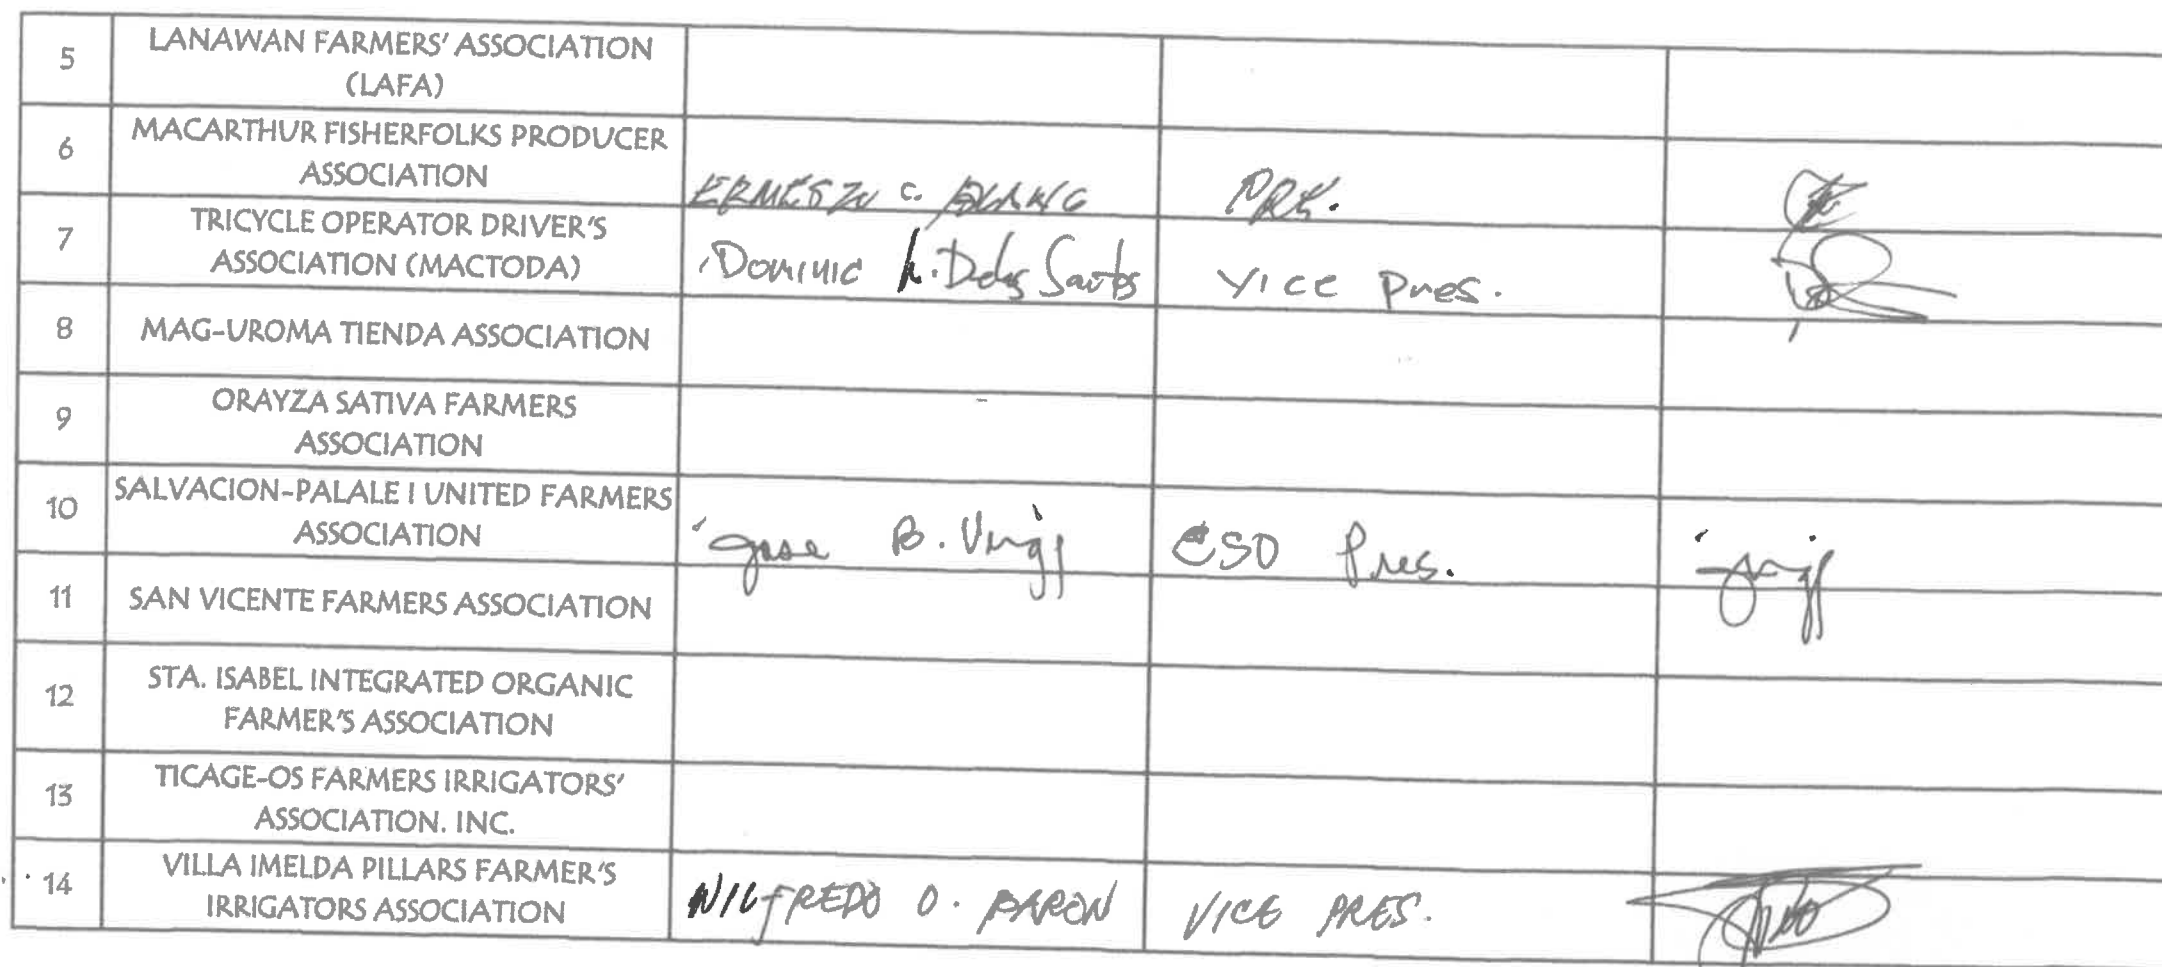 5 LANAWAN FARMERS' ASSOCIATION
(LAFA)
6 MACARTHUR FISHERFOLKS PRODUCER
ASSOCIATION
C. PRE.
7 TRICYCLE OPERATOR DRIVER'S
ASSOCIATION (MACTODA)
Dominic Delos Santos Vice Pres.
8 MAG-UROMA TIENDA ASSOCIATION
9 ORAYZA SATIVA FARMERS
ASSOCIATION
10 SALVACION-PALALE I UNITED FARMERS
ASSOCIATION
Jose B. CSO Pres.
11 SAN VICENTE FARMERS ASSOCIATION
12 STA. ISABEL INTEGRATED ORGANIC
FARMER'S ASSOCIATION
13 TICAGE-OS FARMERS IRRIGATORS'
ASSOCIATION. INC.
14 VILLA IMELDA PILLARS FARMER'S
IRRIGATORS ASSOCIATION
WILFREDO O. BARON VICE PRES.